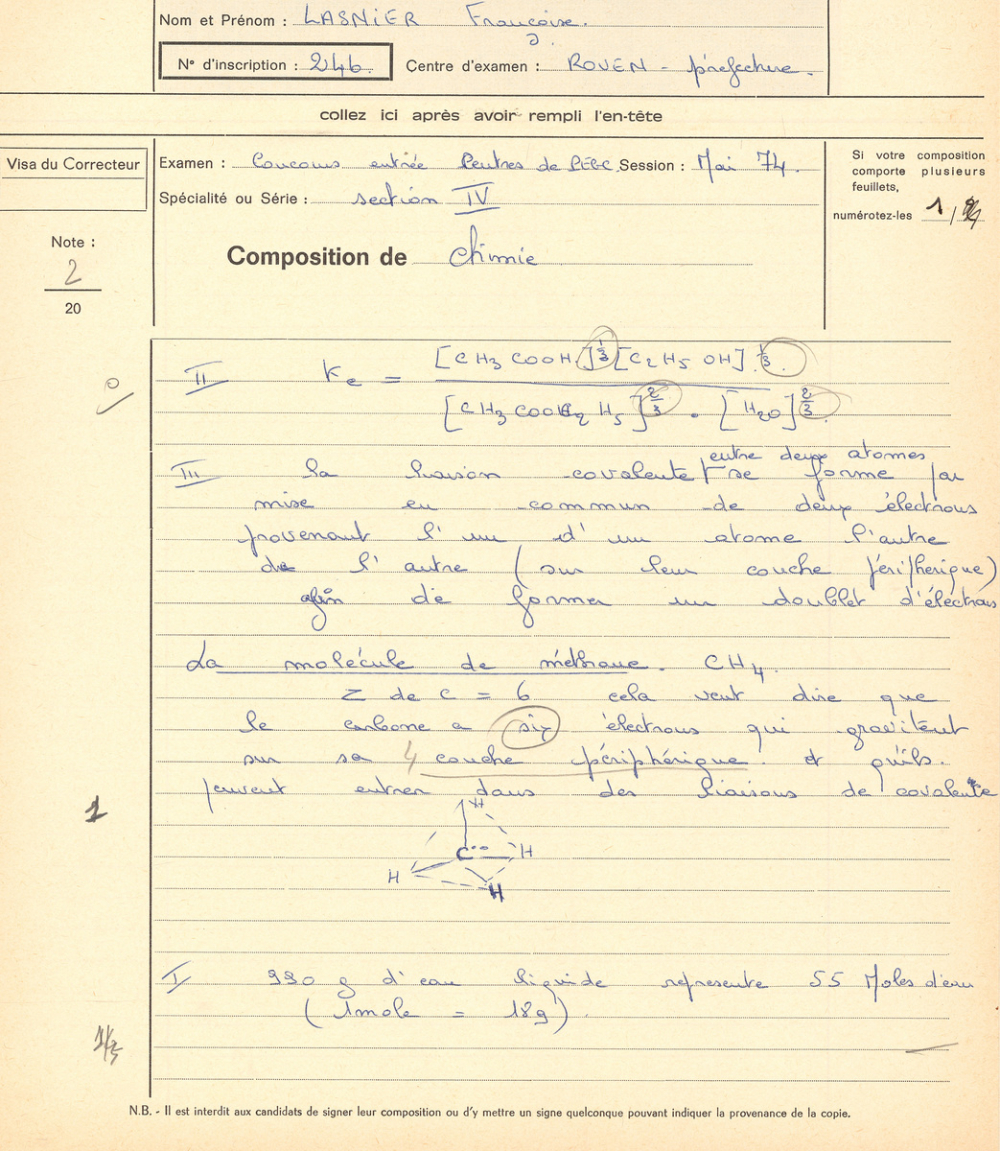 Nom et Prénom : LASNIER Françoise.
N° d'inscription : 246. Centre d'examen : ROUEN - préfecture.
collez ici après avoir rempli l'en-tête
Visa du Correcteur
Examen : Concours entrée Centres de PEGC Session : Mai 74.
Spécialité ou Série : section IV
Si votre composition
comporte plusieurs
feuillets,
numérotez-les 1/
Note :
2
20
Composition de chimie
0
II Ke = [CH3 COOH]^1/3 [C2H5 OH]^1/3 / [CH3 COOC2 H5]^2/3 . [H2O]^2/3
III la liaison covalente entre deux atomes se forme par
mise en commun de deux électrons
provenant l'un d'un atome l'autre
de l'autre (sur leur couche périphérique)
afin de former un doublet d'électrons
La molécule de méthane. CH4
Z de C = 6 cela veut dire que
le carbone a six électrons qui gravitent
sur sa 4 couche périphérique. et qu'ils
peuvent entrer dans des liaisons de covalente
1
H
C
H
H
H
I 990 g d'eau liquide represente 55 Moles d'eau
(1 mole = 18g).
N.B. - Il est interdit aux candidats de signer leur composition ou d'y mettre un signe quelconque pouvant indiquer la provenance de la copie.